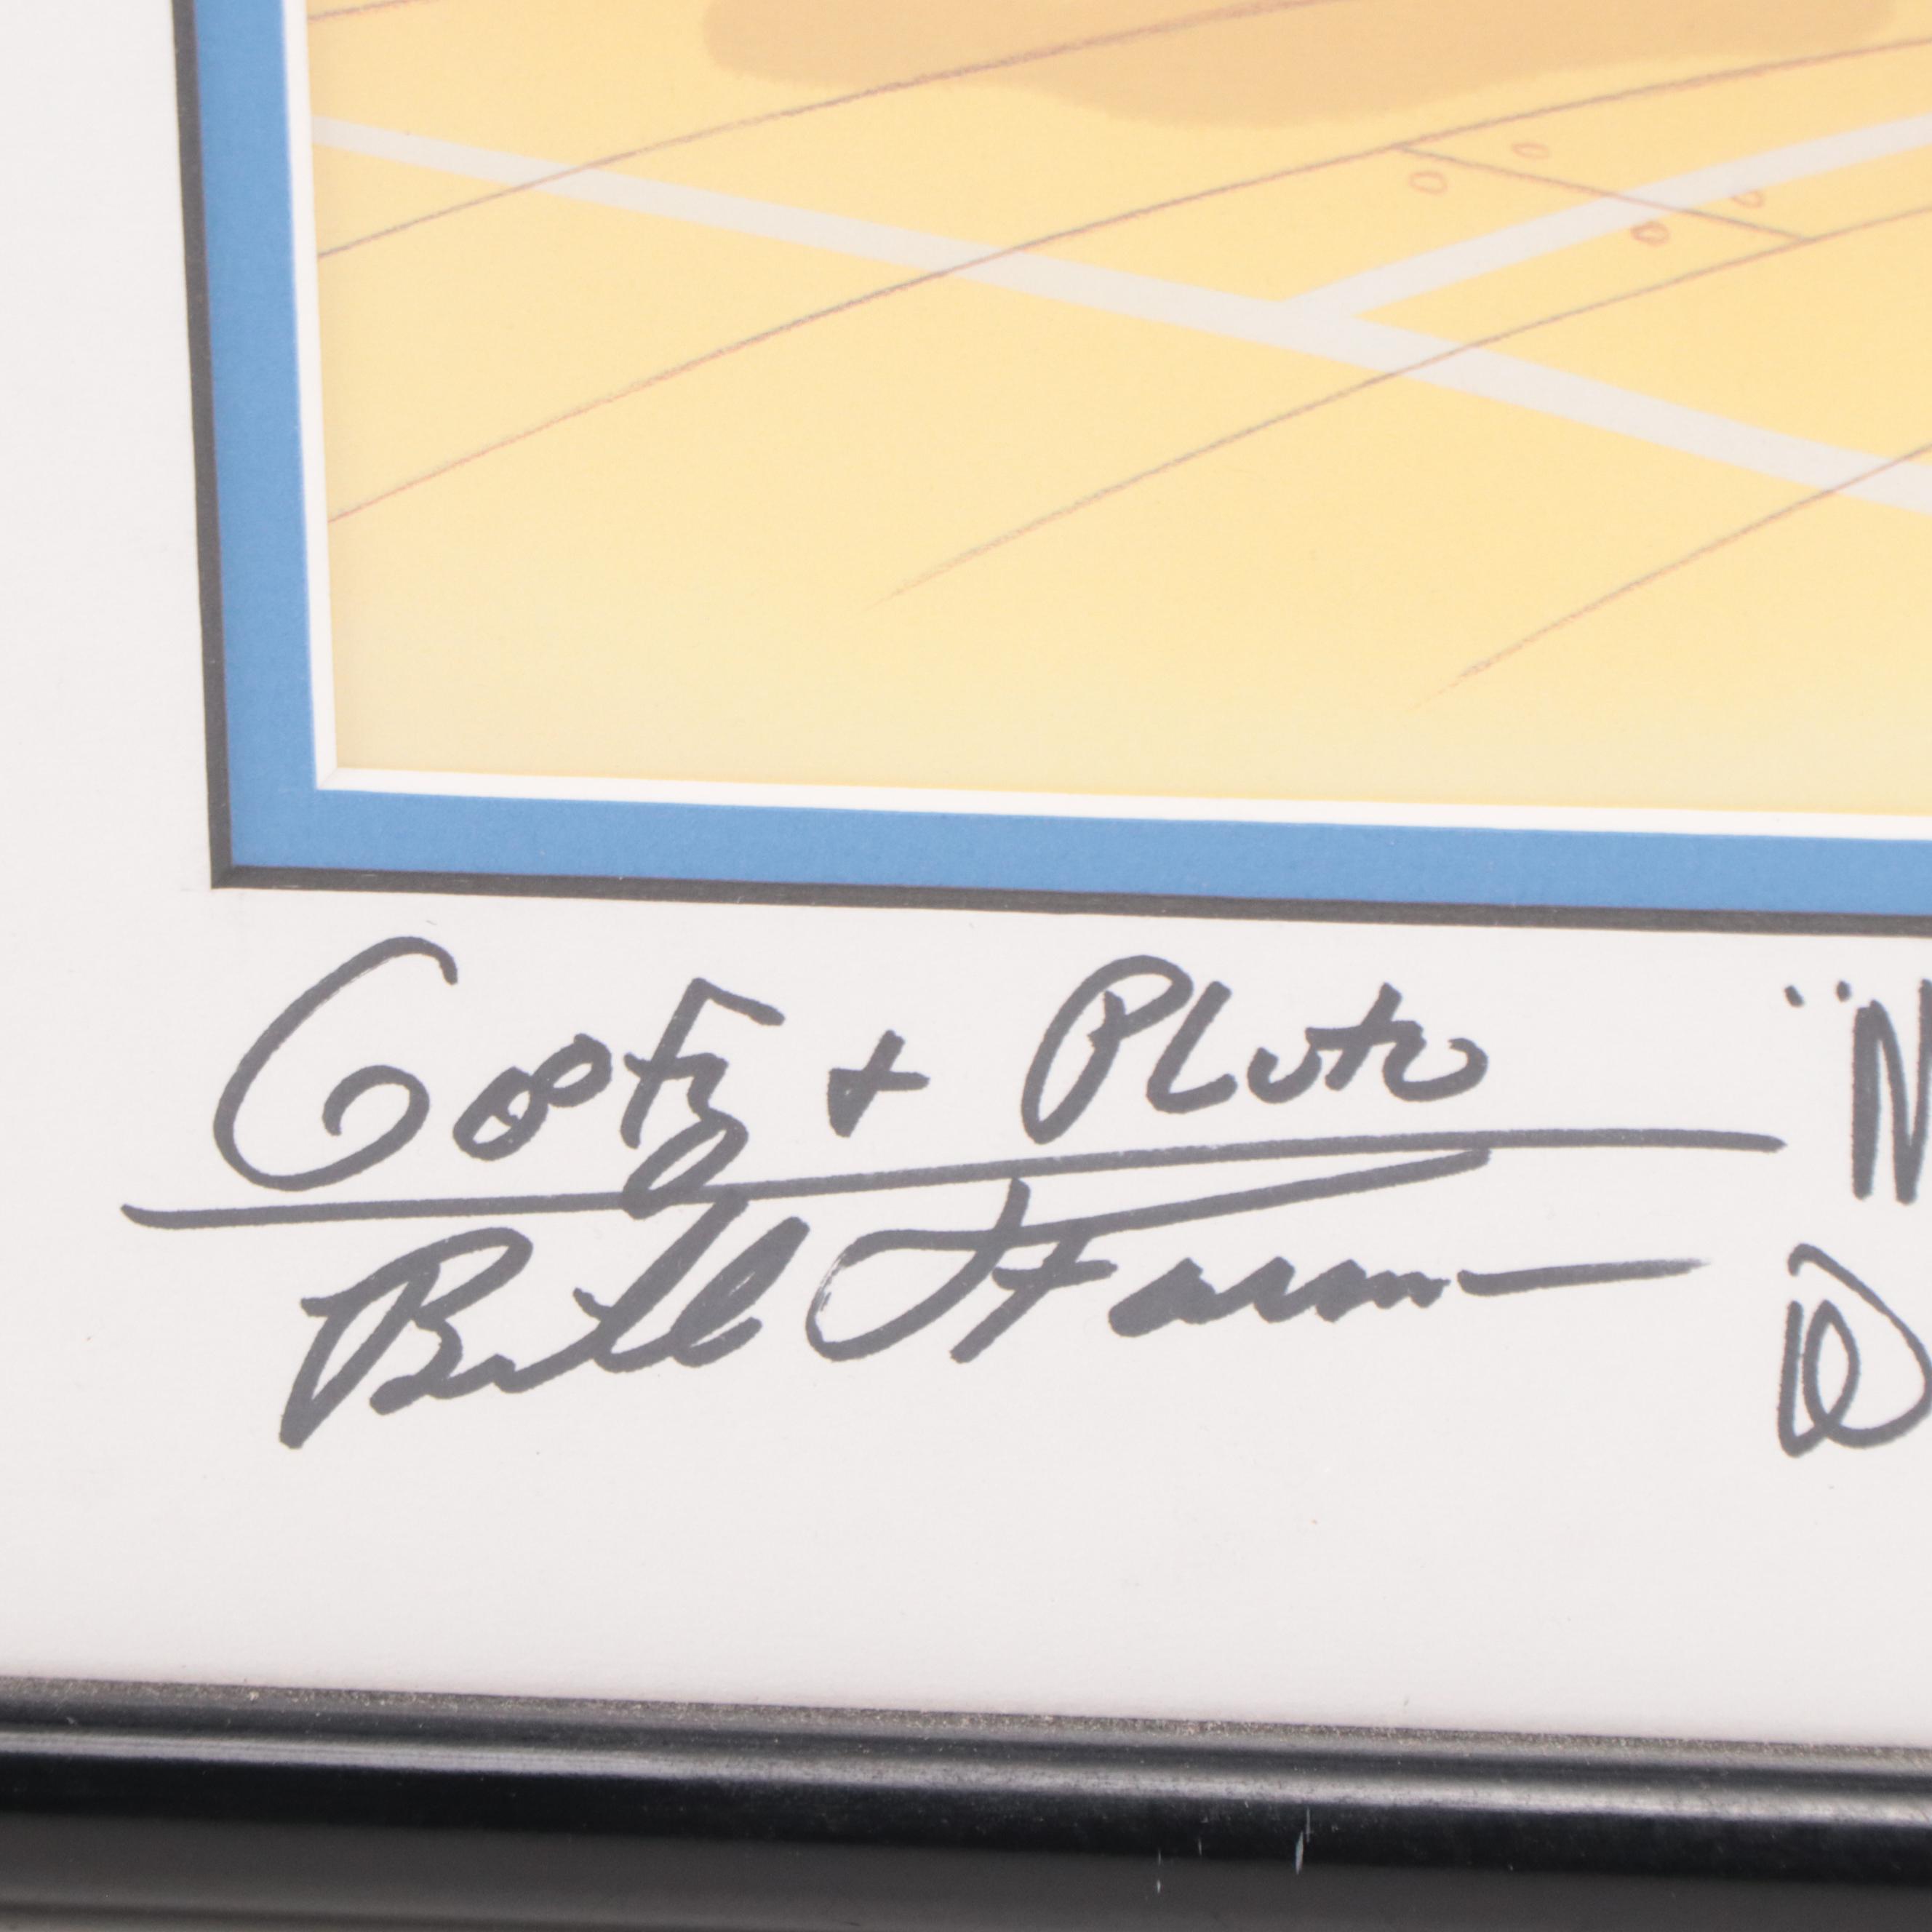 Goofy + Pluto
Bill Farmer